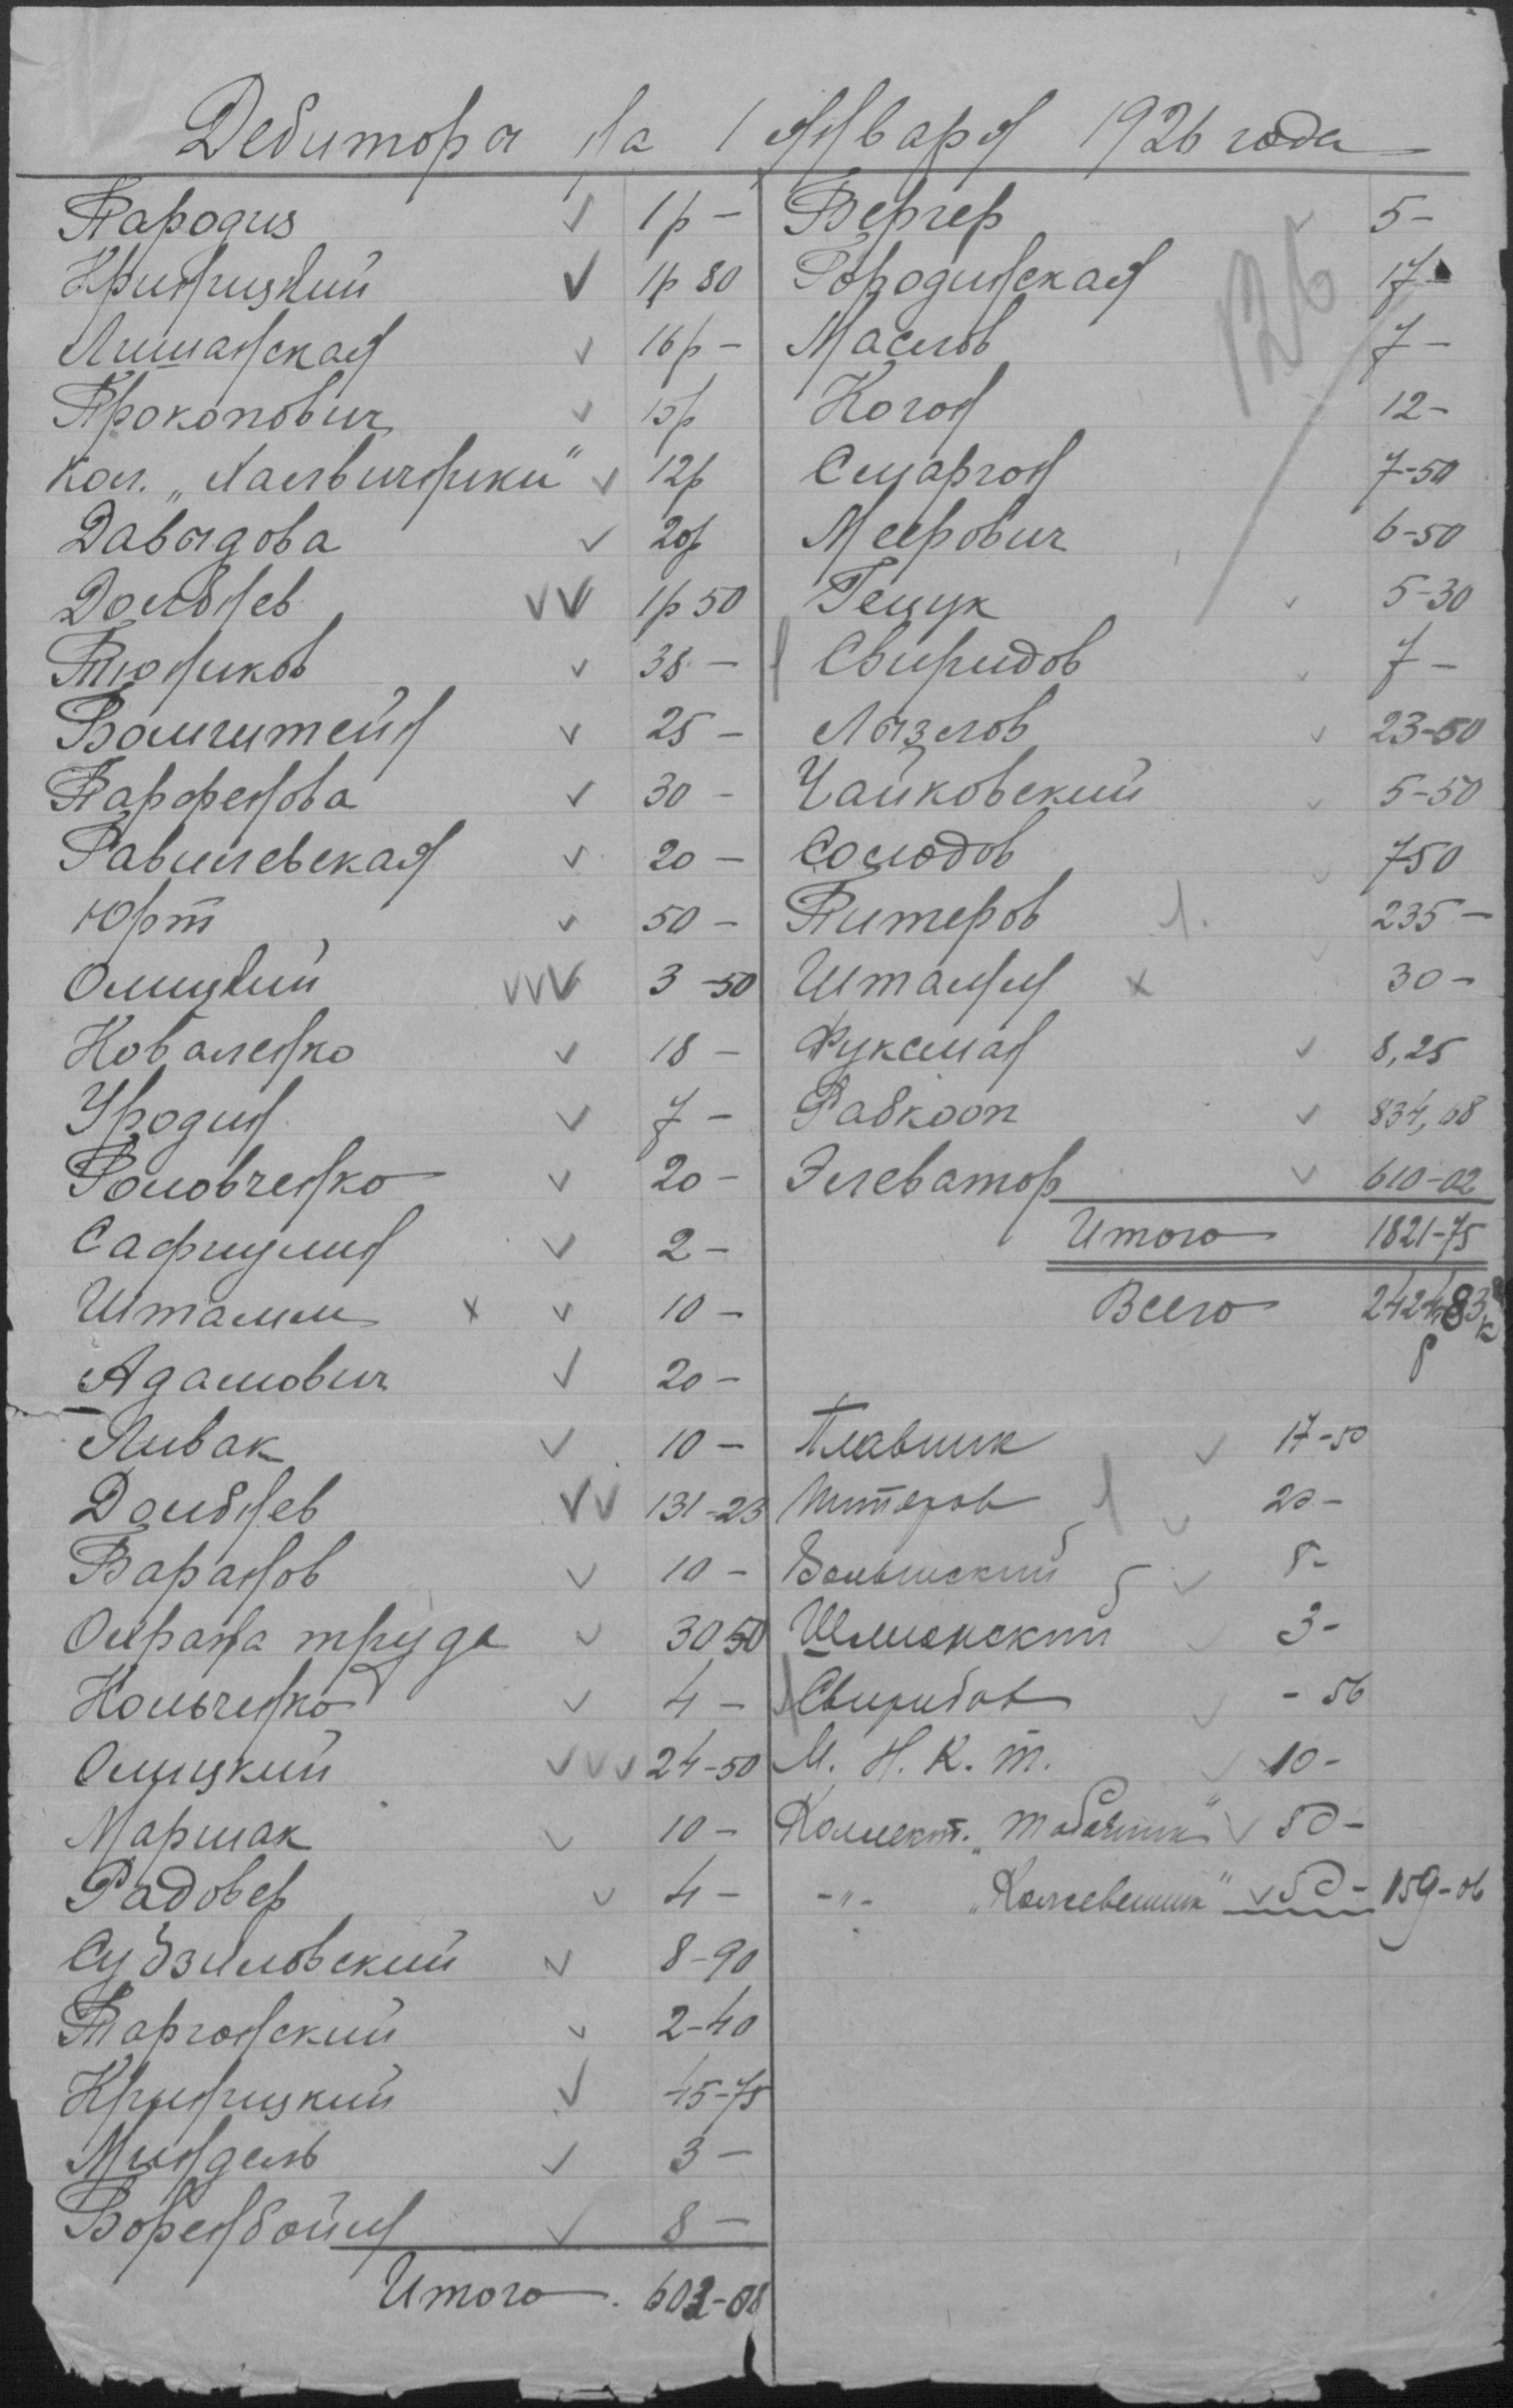 Дебиторы на 1 Января 1926 года
Пародиз √ 1р –
Криницкий √ 1р 80
Лиманская √ 16р –
Прокопович √ 15р
Кол. „Халвичники" √ 12р
Давыдова √ 20р
Домбнев √√ 1р 50
Тюников √ 38 –
Вамштейн √ 25 –
Парфенова √ 30 –
Равилевская √ 20 –
Юрт √ 50 –
Олицкий √√√ 3 – 50
Коваленко √ 18 –
Уродин √ 7 –
Головченко √ 20 –
Сафиулин √ 2 –
Штамм x √ 10 –
Адамович √ 20 –
Ливак √ 10 –
Домбнев √√ 131 – 23
Баранов √ 10 –
Охрана труда √ 30 50
Кольченко √ 4 –
Олицкий √√√ 24 – 50
Маршак √ 10 –
Радовер √ 4 –
Судзиловский √ 8 – 90
Таргонский √ 2 – 40
Криницкий √ 45 – 75
Миндель √ 3 –
Воренбойм √ 8 –
Итого 603 – 08
126
Бергер 5 –
Городинская 17 –
Маслов 7 –
Коган 12 –
Смаргон 7 – 50
Меерович 6 – 50
Гецук √ 5 – 30
Свиридов √ 7 –
Лызлов √ 23 – 50
Чайковский √ 5 – 50
Солодов √ 7 50
Питеров 235 –
Штамм x 30 –
Фуксман √ 8,25
Рабкооп √ 834,68
Элеватор √ 610 – 02
Итого 1821 – 75
Всего 2424 р 83 к
Плавник √ 17 – 50
Питеров √ 20 –
Волынский √ 8 –
Шлионский √ 3 –
Свиридов √ – 56
М. Н. К. Т. √ 10 –
Коллект. „Табачник" √ 50 –
– „ – „Кожевенник" √ 50 – 159 – 06